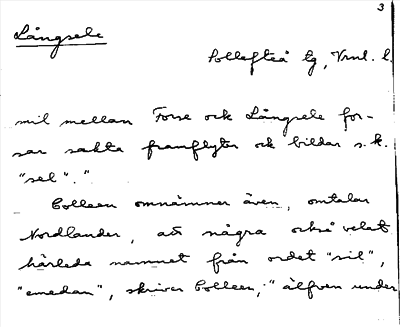 3
Långsele
Sollefteå tg, Vrnl. l.
mil mellan Forse och Långsele for-
sar sakta framflyter och bildar s.k.
"sel"."
Colleen omnämner även, omtalar
Nordlander, att några också velat
härleda namnet från ordet "sil",
"emedan", skriver Colleen, "älfven under